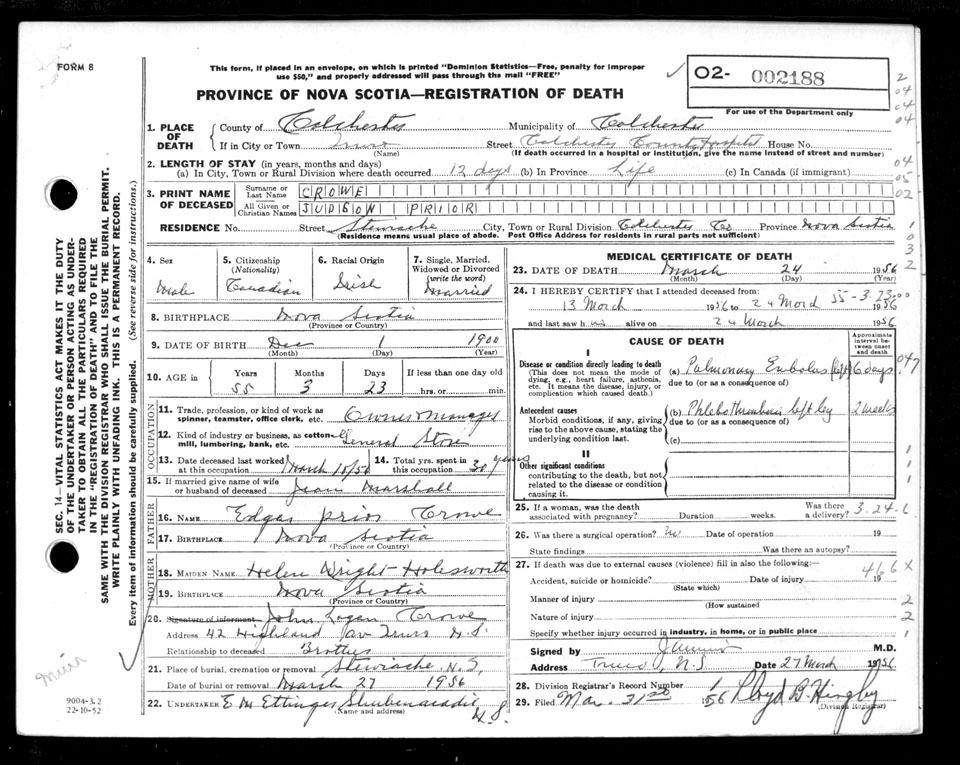 FORM 8
This form, if placed in an envelope, on which is printed "Dominion Statistics—Free, penalty for improper
use $50," and properly addressed will pass through the mail "FREE"
✓ O2- 002188
For use of the Department only
PROVINCE OF NOVA SCOTIA—REGISTRATION OF DEATH
1. PLACE OF DEATH { County of Colchester Municipality of Colchester
If in City or Town Truro (Name) Street Colchester County Hospital House No.
(If death occurred in a hospital or institution, give the name instead of street and number)
2. LENGTH OF STAY (in years, months and days)
(a) In City, Town or Rural Division where death occurred 12 days (b) In Province Life (c) In Canada (if immigrant)
3. PRINT NAME OF DECEASED { Surname or Last Name CROWE
All Given or Christian Names JUDSON PRIOR
RESIDENCE No. Street Stewiacke City, Town or Rural Division Colchester Co Province Nova Scotia
(Residence means usual place of abode. Post Office Address for residents in rural parts not sufficient)
4. Sex Male
5. Citizenship (Nationality) Canadian
6. Racial Origin Irish
7. Single, Married, Widowed or Divorced (write the word) Married
8. BIRTHPLACE Nova Scotia
(Province or Country)
9. DATE OF BIRTH Dec 1 1900
(Month) (Day) (Year)
10. AGE in { Years 55 Months 3 Days 23 If less than one day hrs. or min.
OCCUPATION
11. Trade, profession, or kind of work as spinner, teamster, office clerk, etc. Owner Manager
12. Kind of industry or business, as cotton mill, lumbering, bank, etc. General Store
13. Date deceased last worked at this occupation March 10/56
14. Total yrs. spent in this occupation 30 years
15. If married give name of wife or husband of deceased Jean Marshall
FATHER
16. NAME Edgar Prior Crowe
17. BIRTHPLACE Nova Scotia
(Province or Country)
MOTHER
18. MAIDEN NAME Helen Wright Holesworth
19. BIRTHPLACE Nova Scotia
(Province or Country)
20. Signature of informant John Logan Crowe
Address 42 Highland av Truro N.S.
Relationship to deceased Brother
21. Place of burial, cremation or removal Stewiacke N.S.
Date of burial or removal March 27 1956
22. UNDERTAKER E M Ettinger Shubenacadie N.S.
(Name and address)
MEDICAL CERTIFICATE OF DEATH
23. DATE OF DEATH March 24 1956
24. I HEREBY CERTIFY that I attended deceased from:
55-3-23-00
13 March 1956 to 24 March 1956
and last saw him alive on 24 March 1956
CAUSE OF DEATH
Approximate interval between onset and death
I
Disease or condition directly leading to death
(This does not mean the mode of dying, e.g., heart failure, asthenia, etc. It means the disease, injury, or complication which caused death.)
(a) Pulmonary Embolus (left) 6 days
due to (or as a consequence of)
Antecedent causes
Morbid conditions, if any, giving rise to the above cause, stating the underlying condition last.
(b) Phlebothrombosis left leg 2 weeks
due to (or as a consequence of)
(c)
II
Other significant conditions
contributing to the death, but not related to the disease or condition causing it.
25. If a woman, was the death associated with pregnancy? Duration weeks. Was there a delivery?
3.24.6
26. Was there a surgical operation? No Date of operation 19
State findings Was there an autopsy?
27. If death was due to external causes (violence) fill in also the following:
466 X
Accident, suicide or homicide? Date of injury 19
(State which)
Manner of injury
(How sustained
Nature of injury
Specify whether injury occurred in industry, in home, or in public place
Signed by M.D.
Address Truro, N.S. Date 27 March 1956
28. Division Registrar's Record Number 1
29. Filed Mar. 31st 1956 Lloyd B
(Division Registrar)
SEC. 14—VITAL STATISTICS ACT MAKES IT THE DUTY
OF THE UNDERTAKER OR PERSON ACTING AS UNDERTAKER
TO OBTAIN ALL THE PARTICULARS REQUIRED
IN THE "REGISTRATION OF DEATH" AND TO FILE THE
SAME WITH THE DIVISION REGISTRAR WHO SHALL ISSUE THE BURIAL PERMIT.
WRITE PLAINLY WITH UNFADING INK. THIS IS A PERMANENT RECORD.
Every item of information should be carefully supplied. (See reverse side for instructions.)
9004-3.2
22-10-52
2
04
04
04
04
05
02
1
0
3
2
047
1
1
1
2
2
1